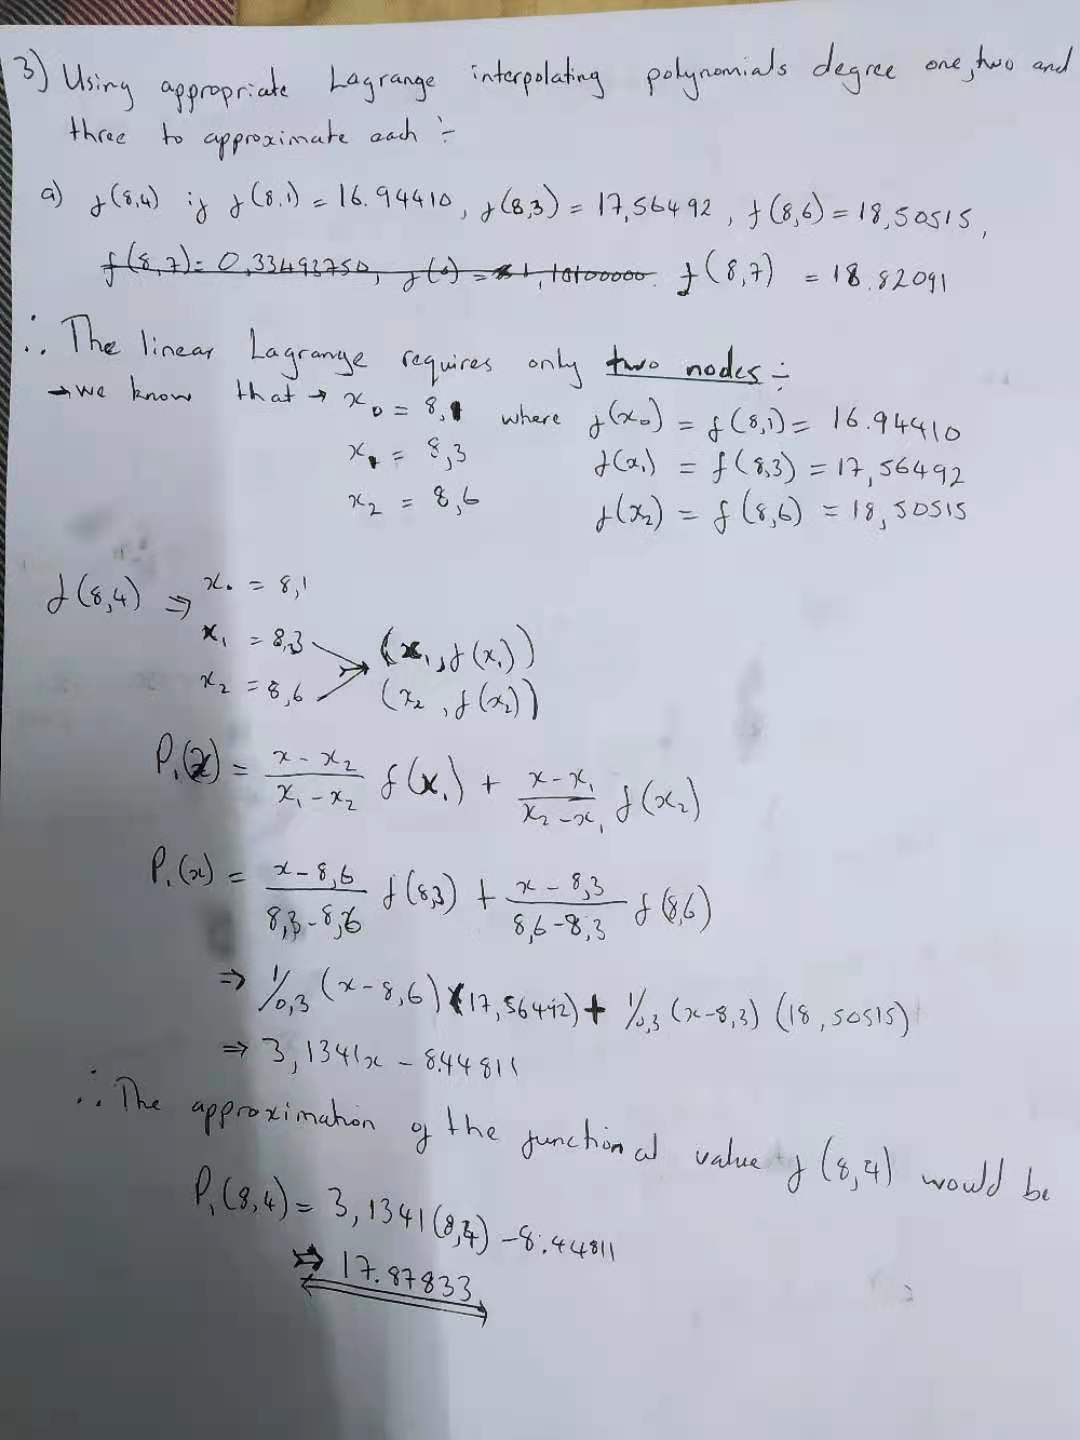 3) Using appropriate Lagrange interpolating polynomials degree one, two and
three to approximate each :-
a) f(8,4) if f(8,1) = 16.94410, f(8,3) = 17,56492, f(8,6) = 18,50515,
f(8,7) = 0,33493750, f(0) = 1,10100000. f(8,7) = 18.82091
∴ The linear Lagrange requires only two nodes :-
→ we know that → x₀ = 8,1 where f(x₀) = f(8,1) = 16.94410
x₁ = 8,3 f(x₁) = f(8,3) = 17,56492
x₂ = 8,6 f(x₂) = f(8,6) = 18,50515
f(8,4) ⇒ x₀ = 8,1
x₁ = 8,3 (x₁, f(x₁))
x₂ = 8,6 (x₂, f(x₂))
P₁(x) = (x - x₂)/(x₁ - x₂) f(x₁) + (x - x₁)/(x₂ - x₁) f(x₂)
P₁(x) = (x - 8,6)/(8,3 - 8,6) f(8,3) + (x - 8,3)/(8,6 - 8,3) f(8,6)
⇒ 1/0,3 (x - 8,6) (17,56492) + 1/0,3 (x - 8,3) (18,50515)
⇒ 3,1341x - 8.44811
∴ The approximation of the functional value f(8,4) would be
P₁(8,4) = 3,1341(8,4) - 8.44811
⇒ 17.87833